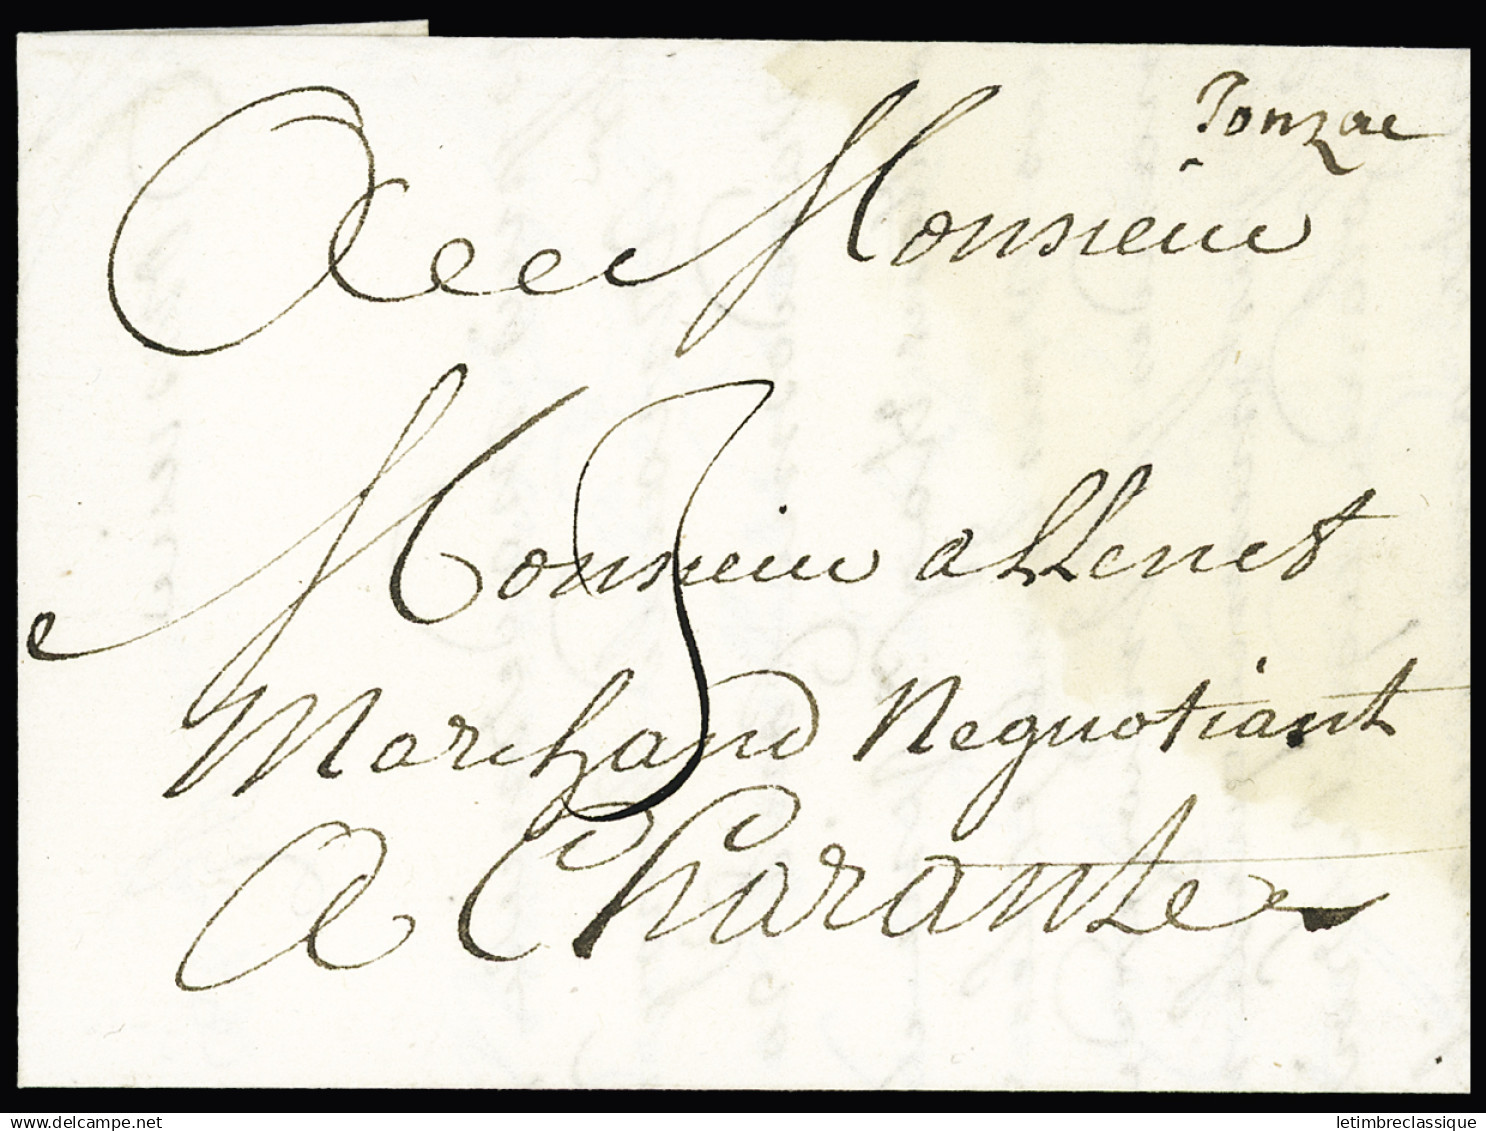 Jonzac
A Monsieur
Monsieur allenet
Marchand Neguotiant
A Charante
www.delcampe.net
letimbreclassique